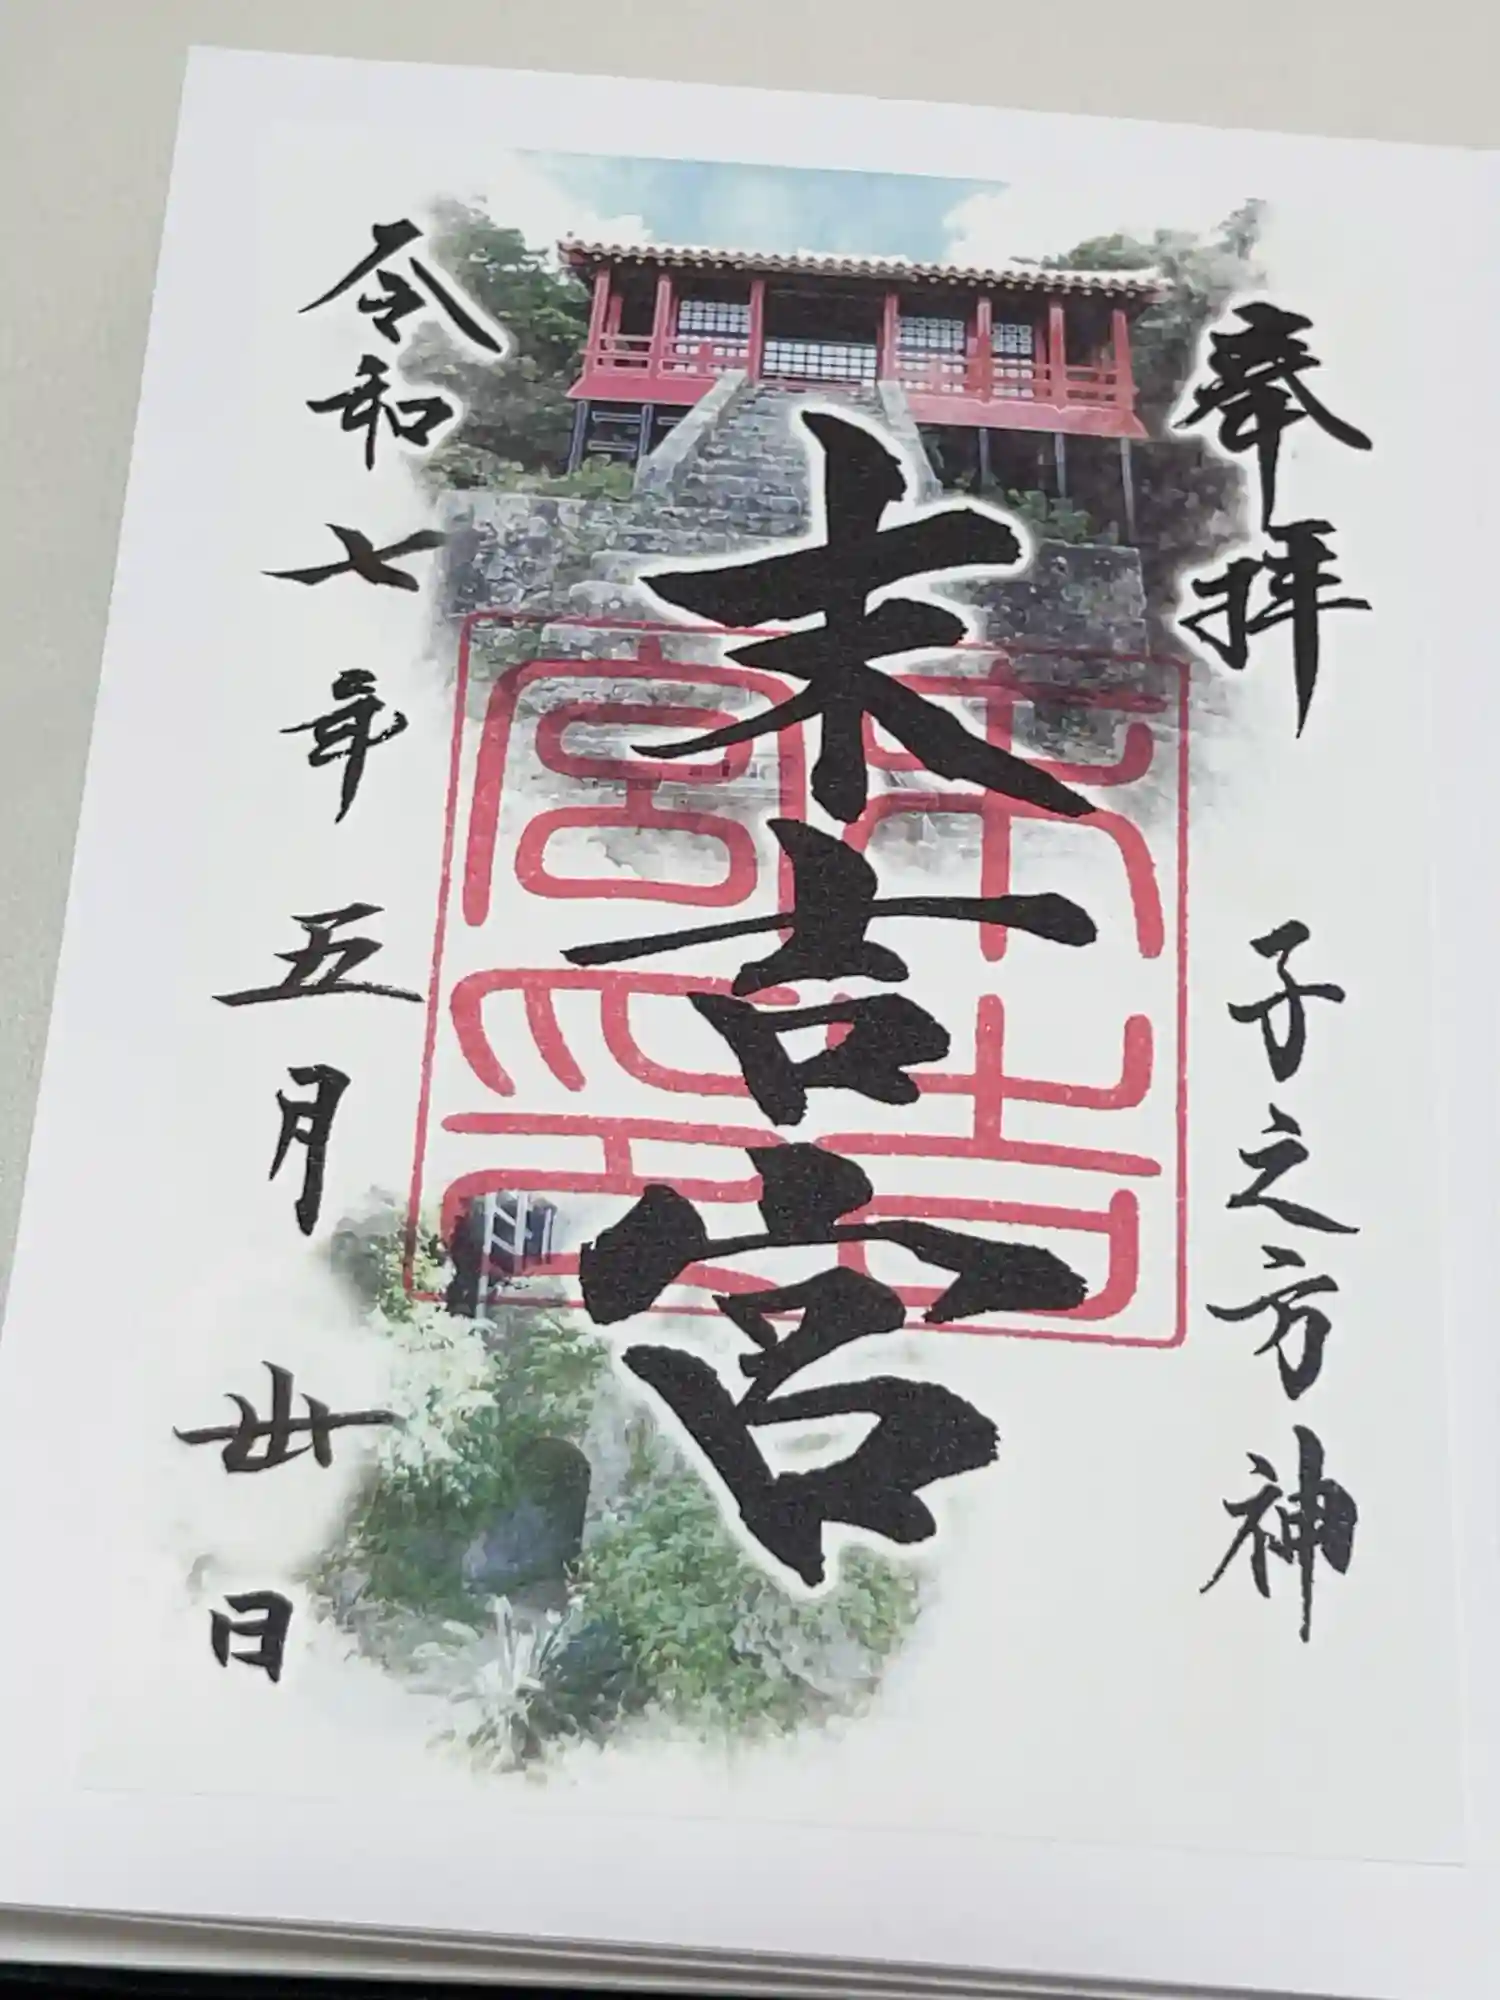 奉拝
子之方神
末吉宮
末吉
宮印
令和七年五月丗日